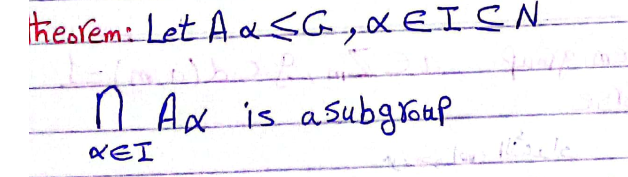 theorem: Let Aα≤G, α∈I⊆N
∩ Aα is a subgroup
α∈I